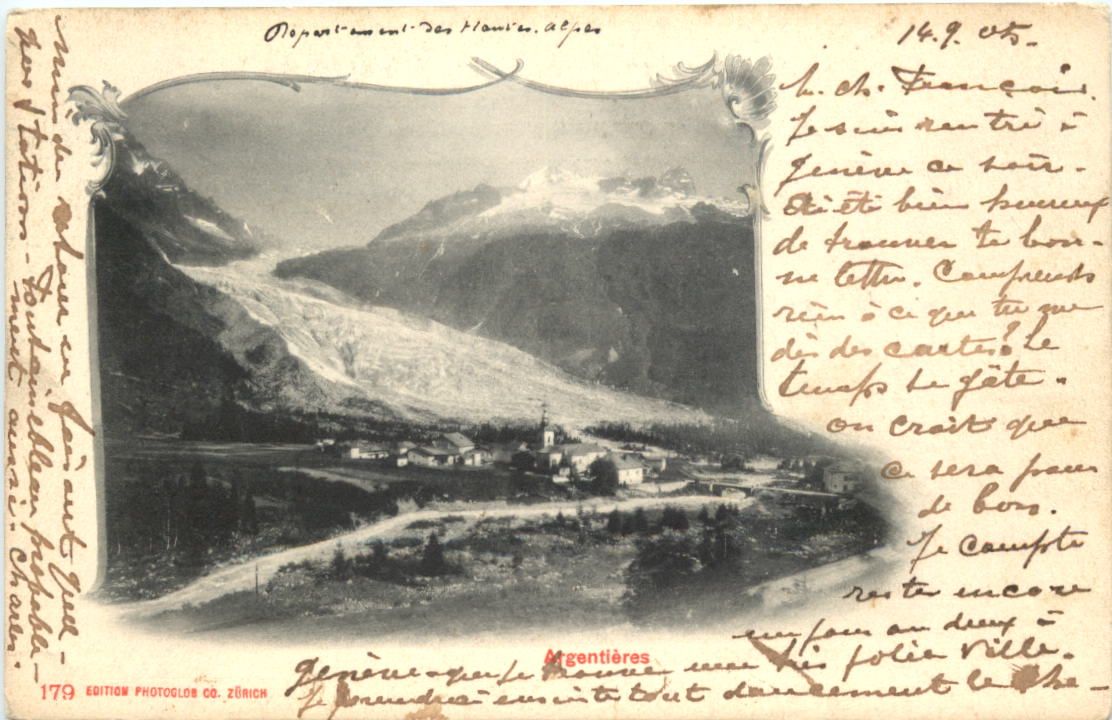 Département des Hautes. Alpes
14.9. 05.
M. ch. François.
Je suis rentré à
genève ce soir.
été bien heureux
de trouver ta bon-
ne lettre. Comprends
rien à ce que tu me
dis des cartes? Le
temps se gâte.
on croit que
ce sera pour
de bon.
Je compte
rester encore
un jour ou deux à
genève que je trouve une très jolie ville.
Je prendrai ensuite tout doucement le che-
min de retour en faisant quel-
ques stations. Fontainebleau probable-
ment aussi. Charles.
Argentières
179 EDITION PHOTOGLOB CO. ZÜRICH